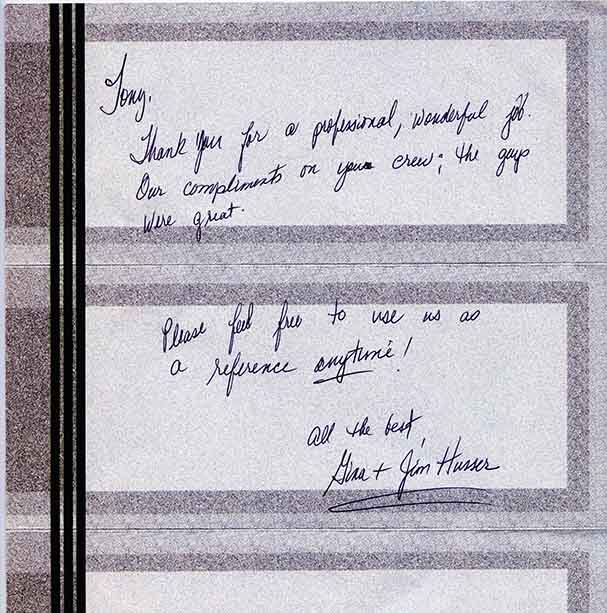 Tony,
Thank you for a professional, wonderful job.
Our compliments on your crew; the guys
were great.
Please feel free to use us as
a reference anytime!
All the best,
Gina + Jim Husser